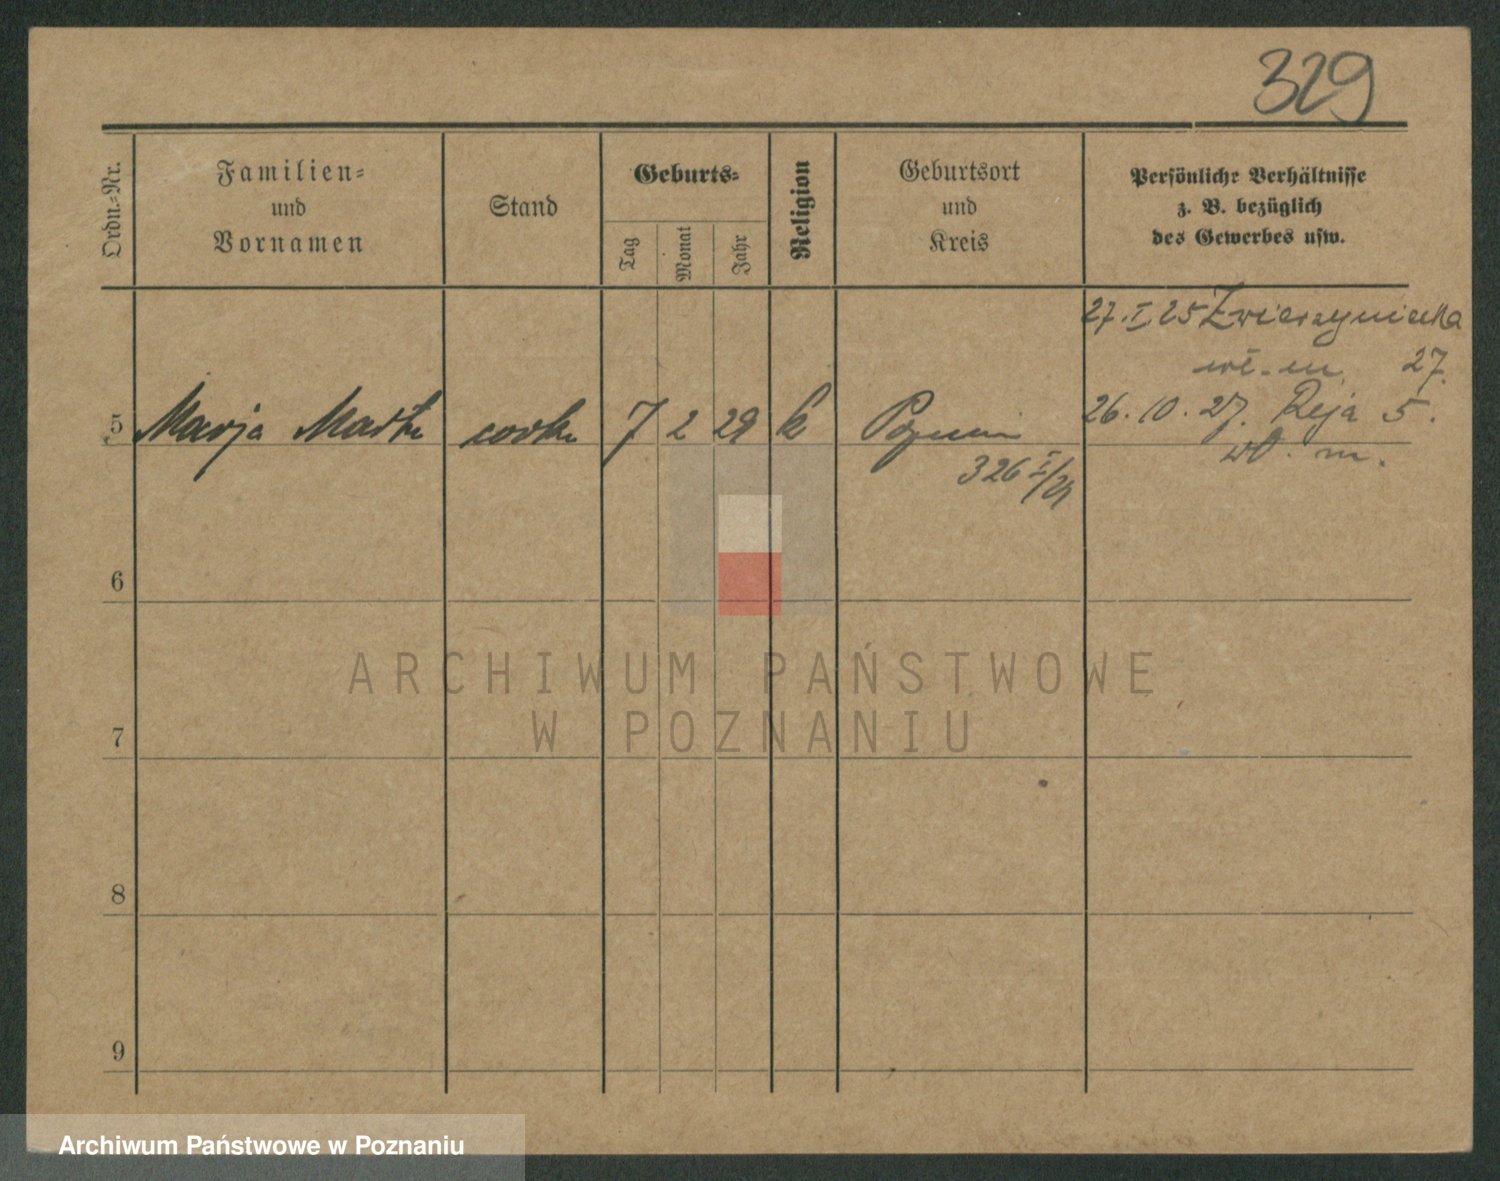 329
Ordn.-Nr.
Familien-
und
Vornamen
Stand
Geburts-
Tag
Monat
Jahr
Religion
Geburtsort
und
Kreis
Persönliche Verhältnisse
z. B. bezüglich
des Gewerbes usw.
27. I 25 Zwierzyniecka
27.
5 Marja Marta córka 7 2 29 k Poznań 26. 10. 27. Reja 5.
326 I/29 wł. m.
6
7
8
9
ARCHIWUM PAŃSTWOWE
W POZNANIU
Archiwum Państwowe w Poznaniu